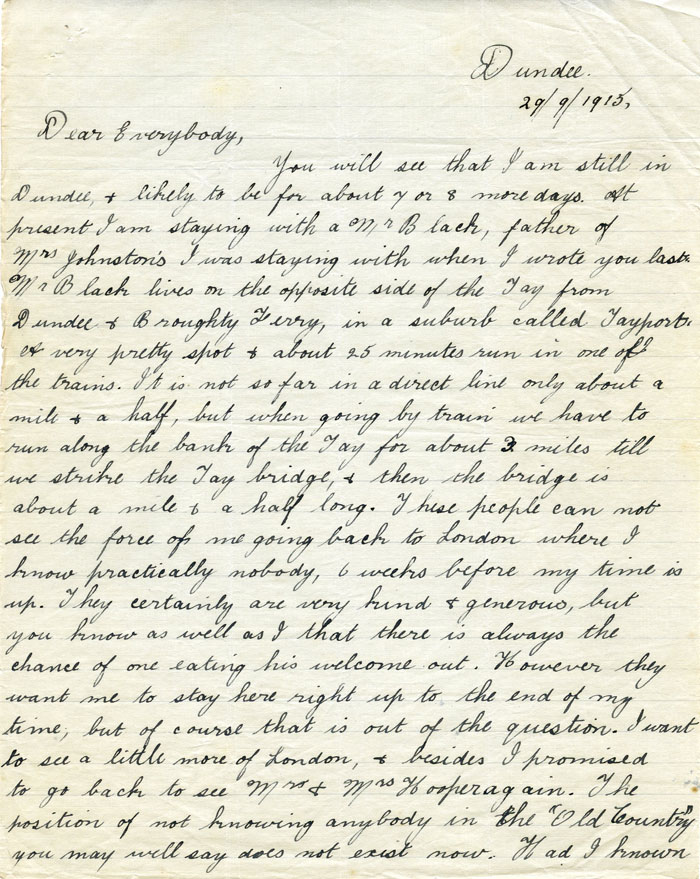 Dundee.
29/9/1915,
Dear Everybody,
You will see that I am still in
Dundee, & likely to be for about 7 or 8 more days. At
present I am staying with a Mr Black, father of
Mrs Johnston's I was staying with when I wrote you last.
Mr Black lives on the opposite side of the Tay from
Dundee & Broughty Ferry, in a suburb called Tayport.
A very pretty spot & about 25 minutes run in one of
the trains. It is not so far in a direct line only about a
mile & a half, but when going by train we have to
run along the bank of the Tay for about 3 miles till
we strike the Tay bridge, & then the bridge is
about a mile & a half long. These people can not
see the force of me going back to London where I
know practically nobody, 6 weeks before my time is
up. They certainly are very kind & generous, but
you know as well as I that there is always the
chance of one eating his welcome out. However they
want me to stay here right up to the end of my
time, but of course that is out of the question. I want
to see a little more of London, & besides I promised
to go back to see Mrs & Mrs Hooper again. The
position of not knowing anybody in the "Old Country"
you may well say does not exist now. Had I known